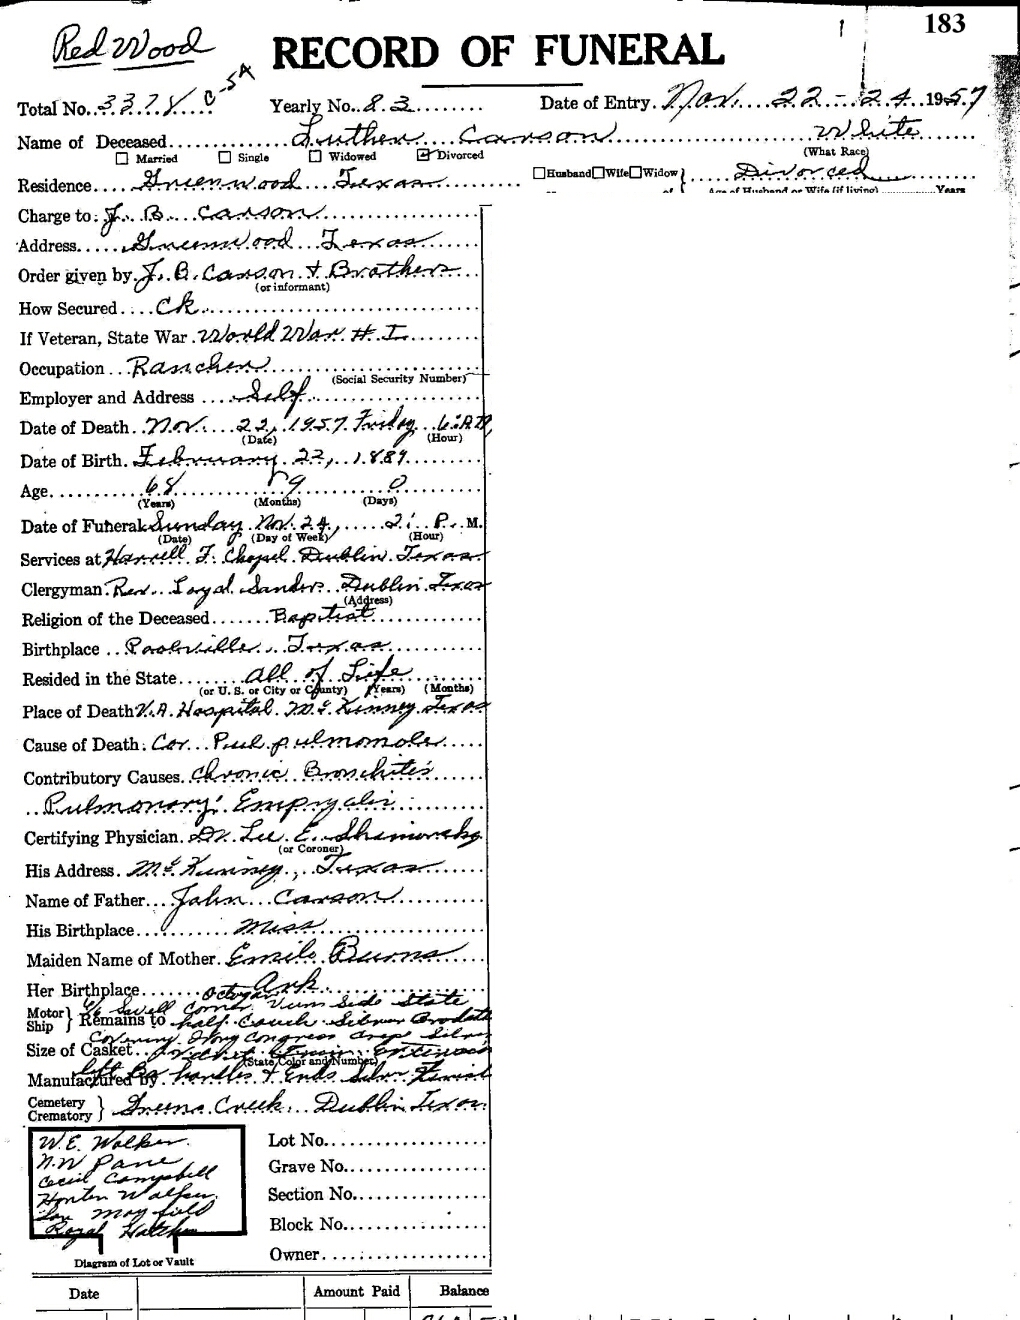 183
Red Wood
RECORD OF FUNERAL
Total No. 3378 C-54 Yearly No. 83 Date of Entry. Nov. 22 - 24 1957
Name of Deceased Luther Carson White
☐ Married ☐ Single ☐ Widowed ☑ Divorced (What Race)
Residence Greenwood Texas ☐Husband☐Wife☐Widow} Divorced
of Age of Husband or Wife (if living) Years
Charge to: J. B. Carson
Address Greenwood Texas
Order given by J. B. Carson + Brothers
(or informant)
How Secured Ck
If Veteran, State War World War # I
Occupation Rancher
(Social Security Number)
Employer and Address Self
Date of Death Nov. 22, 1957 Friday 6:AM
(Date) (Hour)
Date of Birth February 22, 1889
Age 68 9 0
(Years) (Months) (Days)
Date of Funeral Sunday Nov. 24, 2: P. M.
(Date) (Day of Week) (Hour)
Services at Harrell F. Chapel Dublin Texas
Clergyman Rev. Loyal Sanders Dublin Texas
(Address)
Religion of the Deceased Baptist
Birthplace Poolville, Texas
Resided in the State All of Life
(or U. S. or City or County) (Years) (Months)
Place of Death V.A. Hospital McKinney Texas
Cause of Death: Cor. pulmonole
Contributory Causes Chronic Bronchites
Pulmonary
Certifying Physician Dr. Lee E.
(or Coroner)
His Address McKinney, Texas
Name of Father John Carson
His Birthplace Miss
Maiden Name of Mother Emile Burns
Her Birthplace Ark
Octogan
Motor Ship } Remains to 6/6 Corner Side State
half Couch Silver
Size of Casket Covering Congress Silver
(State Color and Number)
Manufactured by handles + Ends Silver
Cemetery Crematory } Greens Creek, Dublin Texas
W.E. Walker
N.W Pane
Cecil Campbell
Walker
Mayfield
Royal
Diagram of Lot or Vault
Lot No.
Grave No.
Section No.
Block No.
Owner
Date Amount Paid Balance